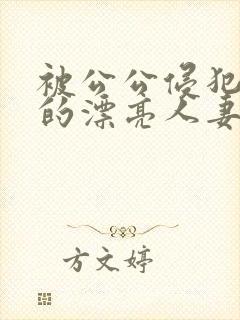 被公公侵犯
的漂亮人妻
方文婷